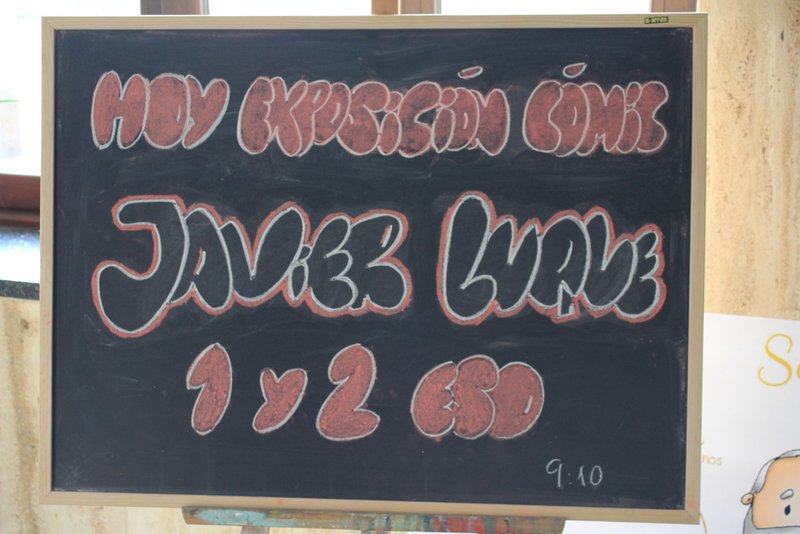 HOY EXPOSICIÓN CÓMIC
JAVIER LUQUE
1 y 2 ESO
9:10